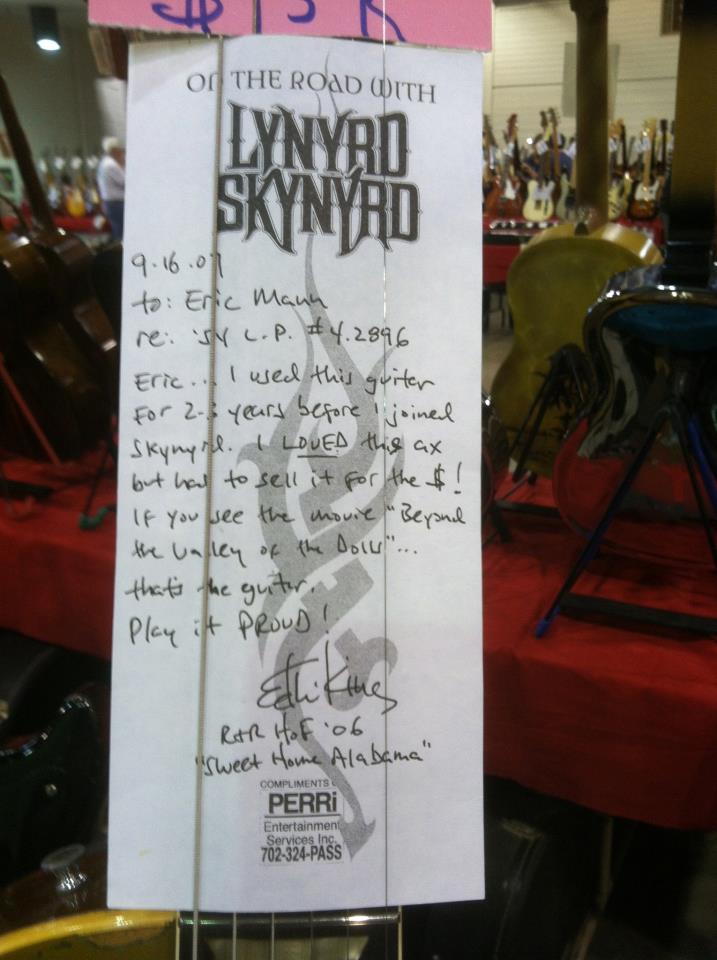 $15K
ON THE ROAD WITH
LYNYRD
SKYNYRD
9.16.07
to: Eric Mann
re: '54 L.P. #4.2896
Eric... I used this guiter
for 2-3 years before I joined
Skynyrd. I LOVED this ax
but had to sell it for the $!
If you see the movie "Beyond
the Valley of the Dolls"...
that's the guiter.
Play it PROUD!
Ed King
R+R HoF '06
"Sweet Home Alabama"
COMPLIMENTS
PERRi
Entertainment
Services Inc.
702-324-PASS